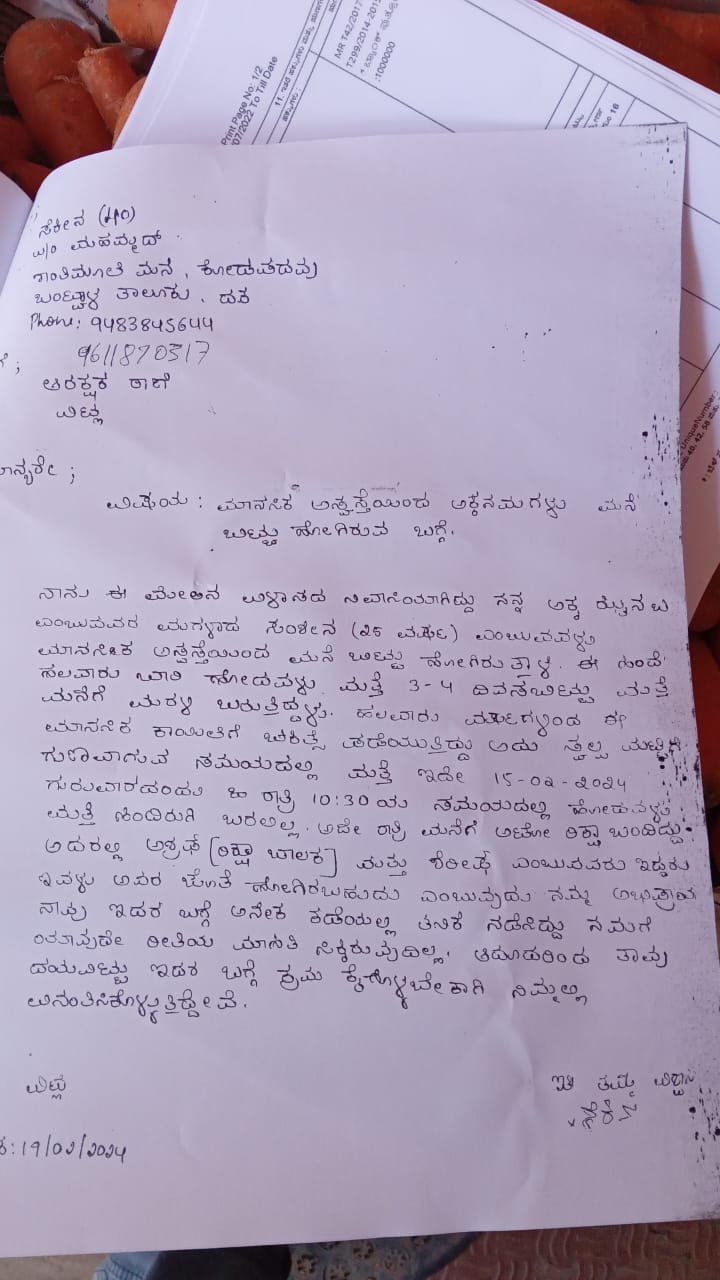 Print Page No: 1/2
07/2022 To Till Date
MR T42/2017
T299/2014-201
:1000000
ಸೆಕೀನ (40)
w/o ಮಹಮ್ಮದ್
ಶಾಂತಿಮೂಲೆ ಮನೆ, ಕೋಡಪದವು
ಬಂಟ್ವಾಳ ತಾಲೂಕು, ದಕ
Phone: 9483845644
9611870317
ಆರಕ್ಷಕ ಠಾಣೆ
ವಿಟ್ಲ
ಮಾನ್ಯರೇ ;
ವಿಷಯ : ಮಾನಸಿಕ ಅಸ್ವಸ್ತೆಯಿಂದ ಅಕ್ಕನಮಗಳು ಮನೆ
ಬಿಟ್ಟು ಹೋಗಿರುವ ಬಗ್ಗೆ.
ನಾನು ಈ ಮೇಲಿನ ವಿಳಾಸದ ನಿವಾಸಿಯಾಗಿದ್ದು ನನ್ನ ಅಕ್ಕ ಝೈನಬ
ಎಂಬುವವರ ಮಗಳಾದ (25 ವರ್ಷ) ಎಂಬುವವಳು
ಮಾನಸಿಕ ಅಸ್ವಸ್ತೆಯಿಂದ ಮನೆ ಬಿಟ್ಟು ಹೋಗಿರುತ್ತಾಳೆ. ಈ ಹಿಂದೆ
ಹಲವಾರು ಬಾರಿ ಹೋದವಳು ಮತ್ತೆ 3-4 ದಿವಸಬಿಟ್ಟು ಮತ್ತೆ
ಮನೆಗೆ ಮರಳಿ ಬರುತ್ತಿದ್ದಳು. ಹಲವಾರು ವರ್ಷಗಳಿಂದ ಈ
ಮಾನಸಿಕ ಕಾಯಿಲೆಗೆ ಚಿಕಿತ್ಸೆ ಪಡೆಯುತ್ತಿದ್ದು ಅದು ಸ್ವಲ್ಪ ಮಟ್ಟಿಗೆ
ಗುಣವಾಗುವ ಸಮಯದಲ್ಲಿ ಮತ್ತೆ ಇದೇ 15-02-2024
ಗುರುವಾರದಂದು ರಾತ್ರಿ 10:30 ಯ ಸಮಯದಲ್ಲಿ ಹೋದವಳು
ಮತ್ತೆ ಹಿಂದಿರುಗಿ ಬರಲಿಲ್ಲ. ಅದೇ ರಾತ್ರಿ ಮನೆಗೆ ಆಟೋ ರಿಕ್ಷಾ ಬಂದಿದ್ದು
ಅದರಲ್ಲಿ ಅಶ್ರಫ್ [ರಿಕ್ಷಾ ಚಾಲಕ] ಮತ್ತು ಶರೀಫ್ ಎಂಬುವವರು ಇದ್ದರು
ಇವಳು ಅವರ ಜೊತೆ ಹೋಗಿರಬಹುದು ಎಂಬುವುದು ನಮ್ಮ ಅಭಿಪ್ರಾಯ
ನಾವು ಇದರ ಬಗ್ಗೆ ಅನೇಕ ಕಡೆಯಲ್ಲಿ ತನಿಕೆ ನಡೆಸಿದ್ದು ನಮಗೆ
ಯಾವುದೇ ರೀತಿಯ ಮಾಹಿತಿ ಸಿಕ್ಕಿರುವುದಿಲ್ಲ. ಆದುದರಿಂದ ತಾವು
ದಯವಿಟ್ಟು ಇದರ ಬಗ್ಗೆ ಕ್ರಮ ಕೈಗೊಳ್ಳಬೇಕಾಗಿ ನಿಮ್ಮಲ್ಲಿ
ವಿನಂತಿಸಿಕೊಳ್ಳುತ್ತಿದ್ದೇವೆ.
ವಿಟ್ಲ
ಇತಿ ತಮ್ಮ ವಿಶ್ವಾಸಿ
: 19/02/2024